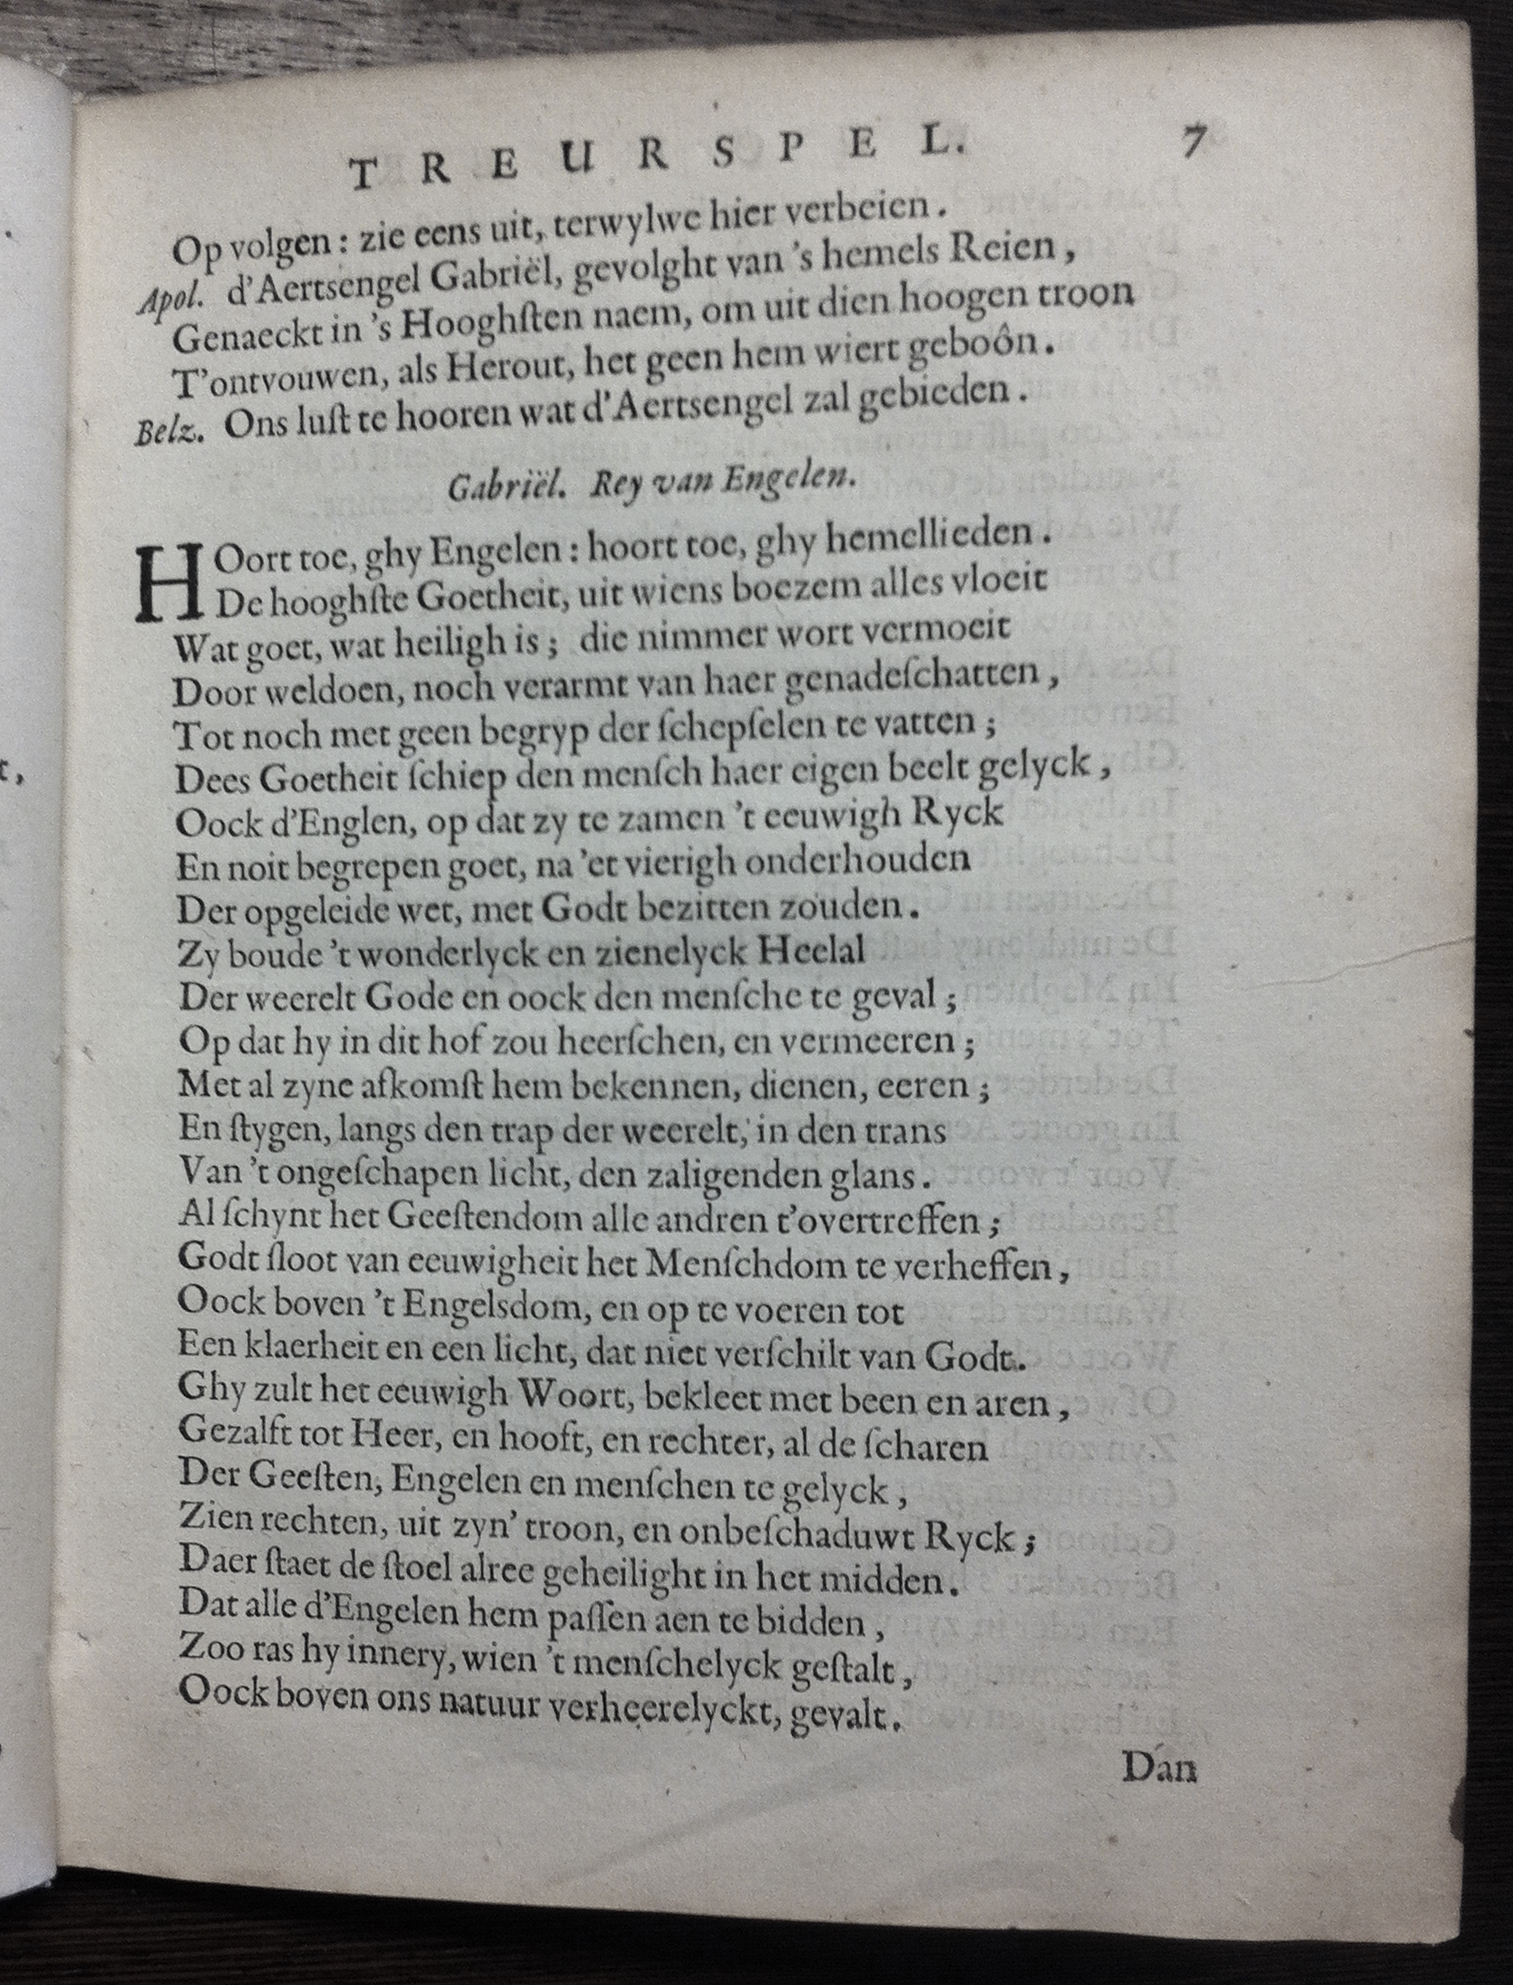 TREURSPEL. 7
Op volgen : zie eens uit, terwylwe hier verbeien.
Apol. d'Aertsengel Gabriël, gevolght van 's hemels Reien,
Genaeckt in 's Hooghſten naem, om uit dien hoogen troon
T'ontvouwen, als Herout, het geen hem wiert geboôn.
Belz. Ons luſt te hooren wat d'Aertsengel zal gebieden.
Gabriël. Rey van Engelen.
HOort toe, ghy Engelen : hoort toe, ghy hemellieden.
De hooghſte Goetheit, uit wiens boezem alles vloeit
Wat goet, wat heiligh is ; die nimmer wort vermoeit
Door weldoen, noch verarmt van haer genadeſchatten,
Tot noch met geen begryp der ſchepſelen te vatten ;
Dees Goetheit ſchiep den menſch haer eigen beelt gelyck,
Oock d'Englen, op dat zy te zamen 't eeuwigh Ryck
En noit begrepen goet, na 'et vierigh onderhouden
Der opgeleide wet, met Godt bezitten zouden.
Zy boude 't wonderlyck en zienelyck Heelal
Der weerelt Gode en oock den menſche te geval ;
Op dat hy in dit hof zou heerſchen, en vermeeren ;
Met al zyne afkomſt hem bekennen, dienen, eeren ;
En ſtygen, langs den trap der weerelt, in den trans
Van 't ongeſchapen licht, den zaligenden glans.
Al ſchynt het Geeſtendom alle andren t'overtreffen ;
Godt ſloot van eeuwigheit het Menſchdom te verheffen,
Oock boven 't Engelsdom, en op te voeren tot
Een klaerheit en een licht, dat niet verſchilt van Godt.
Ghy zult het eeuwigh Woort, bekleet met been en aren,
Gezalft tot Heer, en hooft, en rechter, al de ſcharen
Der Geeſten, Engelen en menſchen te gelyck,
Zien rechten, uit zyn' troon, en onbeſchaduwt Ryck ;
Daer ſtaet de ſtoel alree geheilight in het midden.
Dat alle d'Engelen hem paſſen aen te bidden,
Zoo ras hy innery, wien 't menſchelyck geſtalt,
Oock boven ons natuur verheerelyckt, gevalt.
Dan